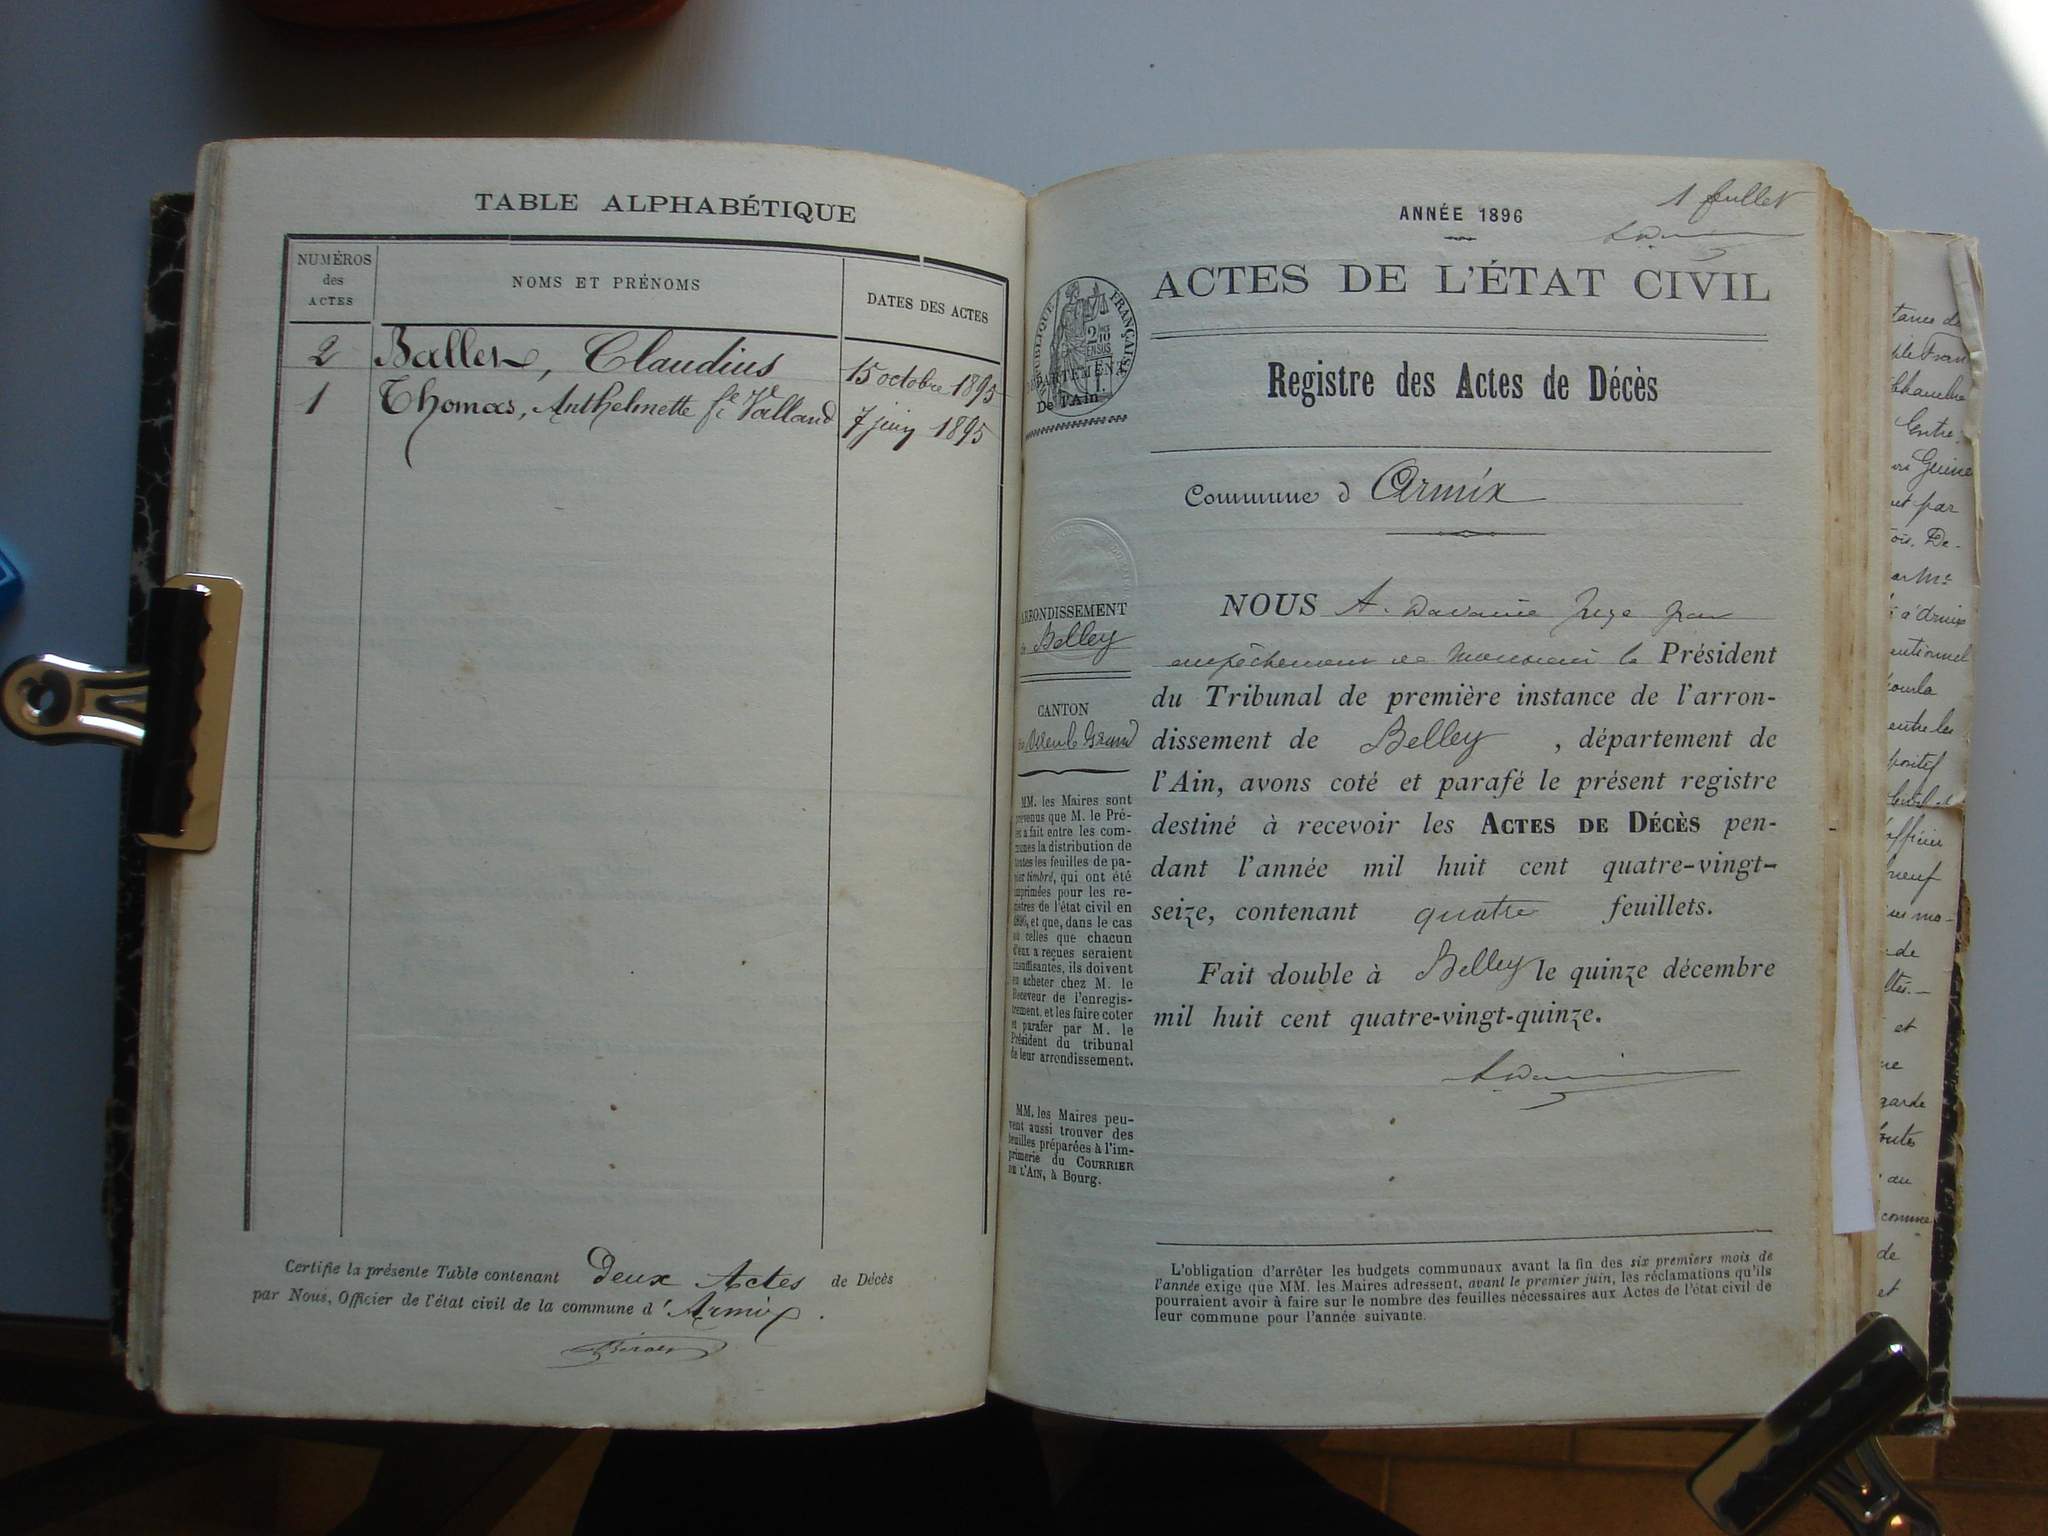 TABLE ALPHABÉTIQUE
NUMÉROS
des
ACTES
NOMS ET PRÉNOMS
DATES DES ACTES
2 Ballet, Claudius 15 octobre 1895
1 Thomas, Anthelmette fe Valland 7 juin 1895
Certifie la présente Table contenant Deux Actes de Décès
par Nous, Officier de l'état civil de la commune d'Armix.
1 feuillet
ANNÉE 1896
ACTES DE L'ÉTAT CIVIL
RÉPUBLIQUE FRANÇAISE
2/10
EN SUS
DÉPARTEMENT
De l'Ain
Registre des Actes de Décès
Commune d Armix
ARRONDISSEMENT
de Belley
CANTON
MM. les Maires sont
prévenus que M. le Pré-
fet a fait entre les com-
munes la distribution de
toutes les feuilles de pa-
pier timbré, qui ont été
imprimées pour les re-
gistres de l'état civil en
1896, et que, dans le cas
où celles que chacun
d'eux a reçues seraient
insuffisantes, ils doivent
en acheter chez M. le
Receveur de l'enregis-
trement, et les faire coter
et parafer par M. le
Président du tribunal
de leur arrondissement.
MM. les Maires peu-
vent aussi trouver des
feuilles préparées à l'im-
primerie du COURRIER
DE L'AIN, à Bourg.
NOUS A. juge par
empêchement de Monsieur le Président
du Tribunal de première instance de l'arron-
dissement de Belley, département de
l'Ain, avons coté et parafé le présent registre
destiné à recevoir les ACTES DE DÉCÈS pen-
dant l'année mil huit cent quatre-vingt-
seize, contenant quatre feuillets.
Fait double à Belley le quinze décembre
mil huit cent quatre-vingt-quinze.
L'obligation d'arrêter les budgets communaux avant la fin des six premiers mois de
l'année exige que MM. les Maires adressent, avant le premier juin, les réclamations qu'ils
pourraient avoir à faire sur le nombre des feuilles nécessaires aux Actes de l'état civil de
leur commune pour l'année suivante.